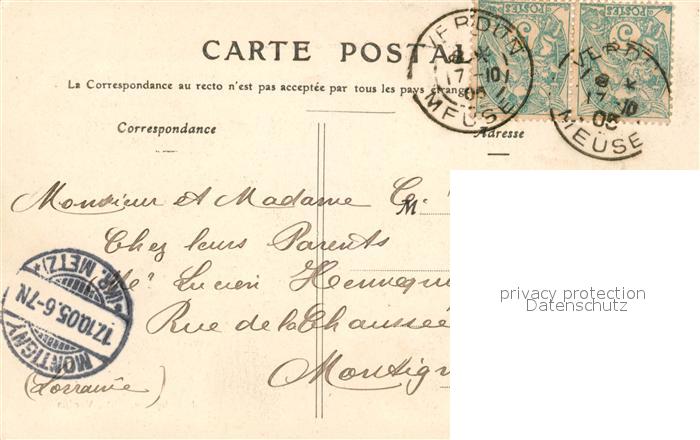 CARTE POSTAL
La Correspondance au recto n'est pas acceptée par tous les pays étrang
Correspondance
Adresse
POSTES
POSTES
VERDUN
17-10
05
MEUSE
VERD
17 10
05
MEUSE
Monsieur et Madame
M.
Chez leurs Parents
Lucien Hennequ
Rue de la Chaussée
Montign
(Lorraine)
MONTIGNY
17.10.05.6-7N.
(KR. METZ)
privacy protection
Datenschutz